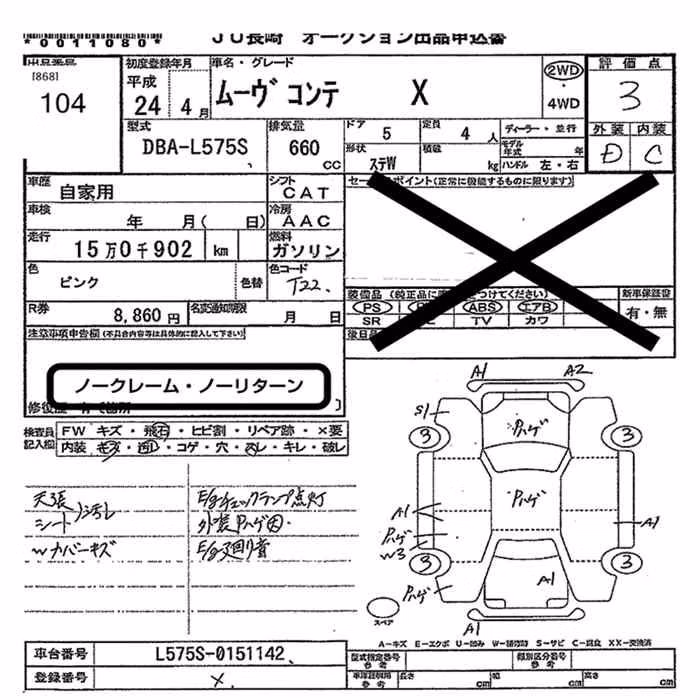 *0011080* JU長崎 オークション出品申込書
[868]
104
初度登録年月 平成 24年 4月
車名・グレード ムーヴ コンテ X
2WD ・ 4WD
評価点 3
外装 D 内装 C
型式 DBA-L575S
排気量 660 CC
ドア 5 定員 4人
形状 ステW 積載 kg
ディーラー・並行
モデル年式 年
ハンドル 左・右
車歴 自家用
シフト CAT
車検 年 月( 日)
冷房 AAC
走行 15万0千902 km
燃料 ガソリン
色 ピンク 色替
色コード T22
R券 8,860円
名変通知期限 月 日
セールスポイント(正常に機能するものに限ります)
装備品 (純正品に つけてください)
PS ABS エアB
SR TV カワ
新車保証書 有・無
後日品
注意事項申告欄 (不具合内容等は具体的に記入して下さい)
ノークレーム・ノーリターン
検査員記入欄
FW キズ・飛石・ヒビ割・リペア跡・×要
内装 キズ・汚レ・コゲ・穴・スレ・キレ・破レ
天張 シート 汚レ
Wカバーキズ
E/gチェックランプ点灯
外装Pハゲ
E/g廻り音
A1 A2
S1
3 3
Pハゲ
Pハゲ
A1
A1
Pハゲ
W3
3 3
Pハゲ
A1
スペア
A-キズ E-エクボ U-凹み W-補修跡 S-サビ C-腐食 XX-交換済
車台番号 L575S-0151142
登録番号 ×
型式指定番号 参考
類別区分番号 参考
車庫証明用 参考 長さ cm 幅 cm 高さ cm